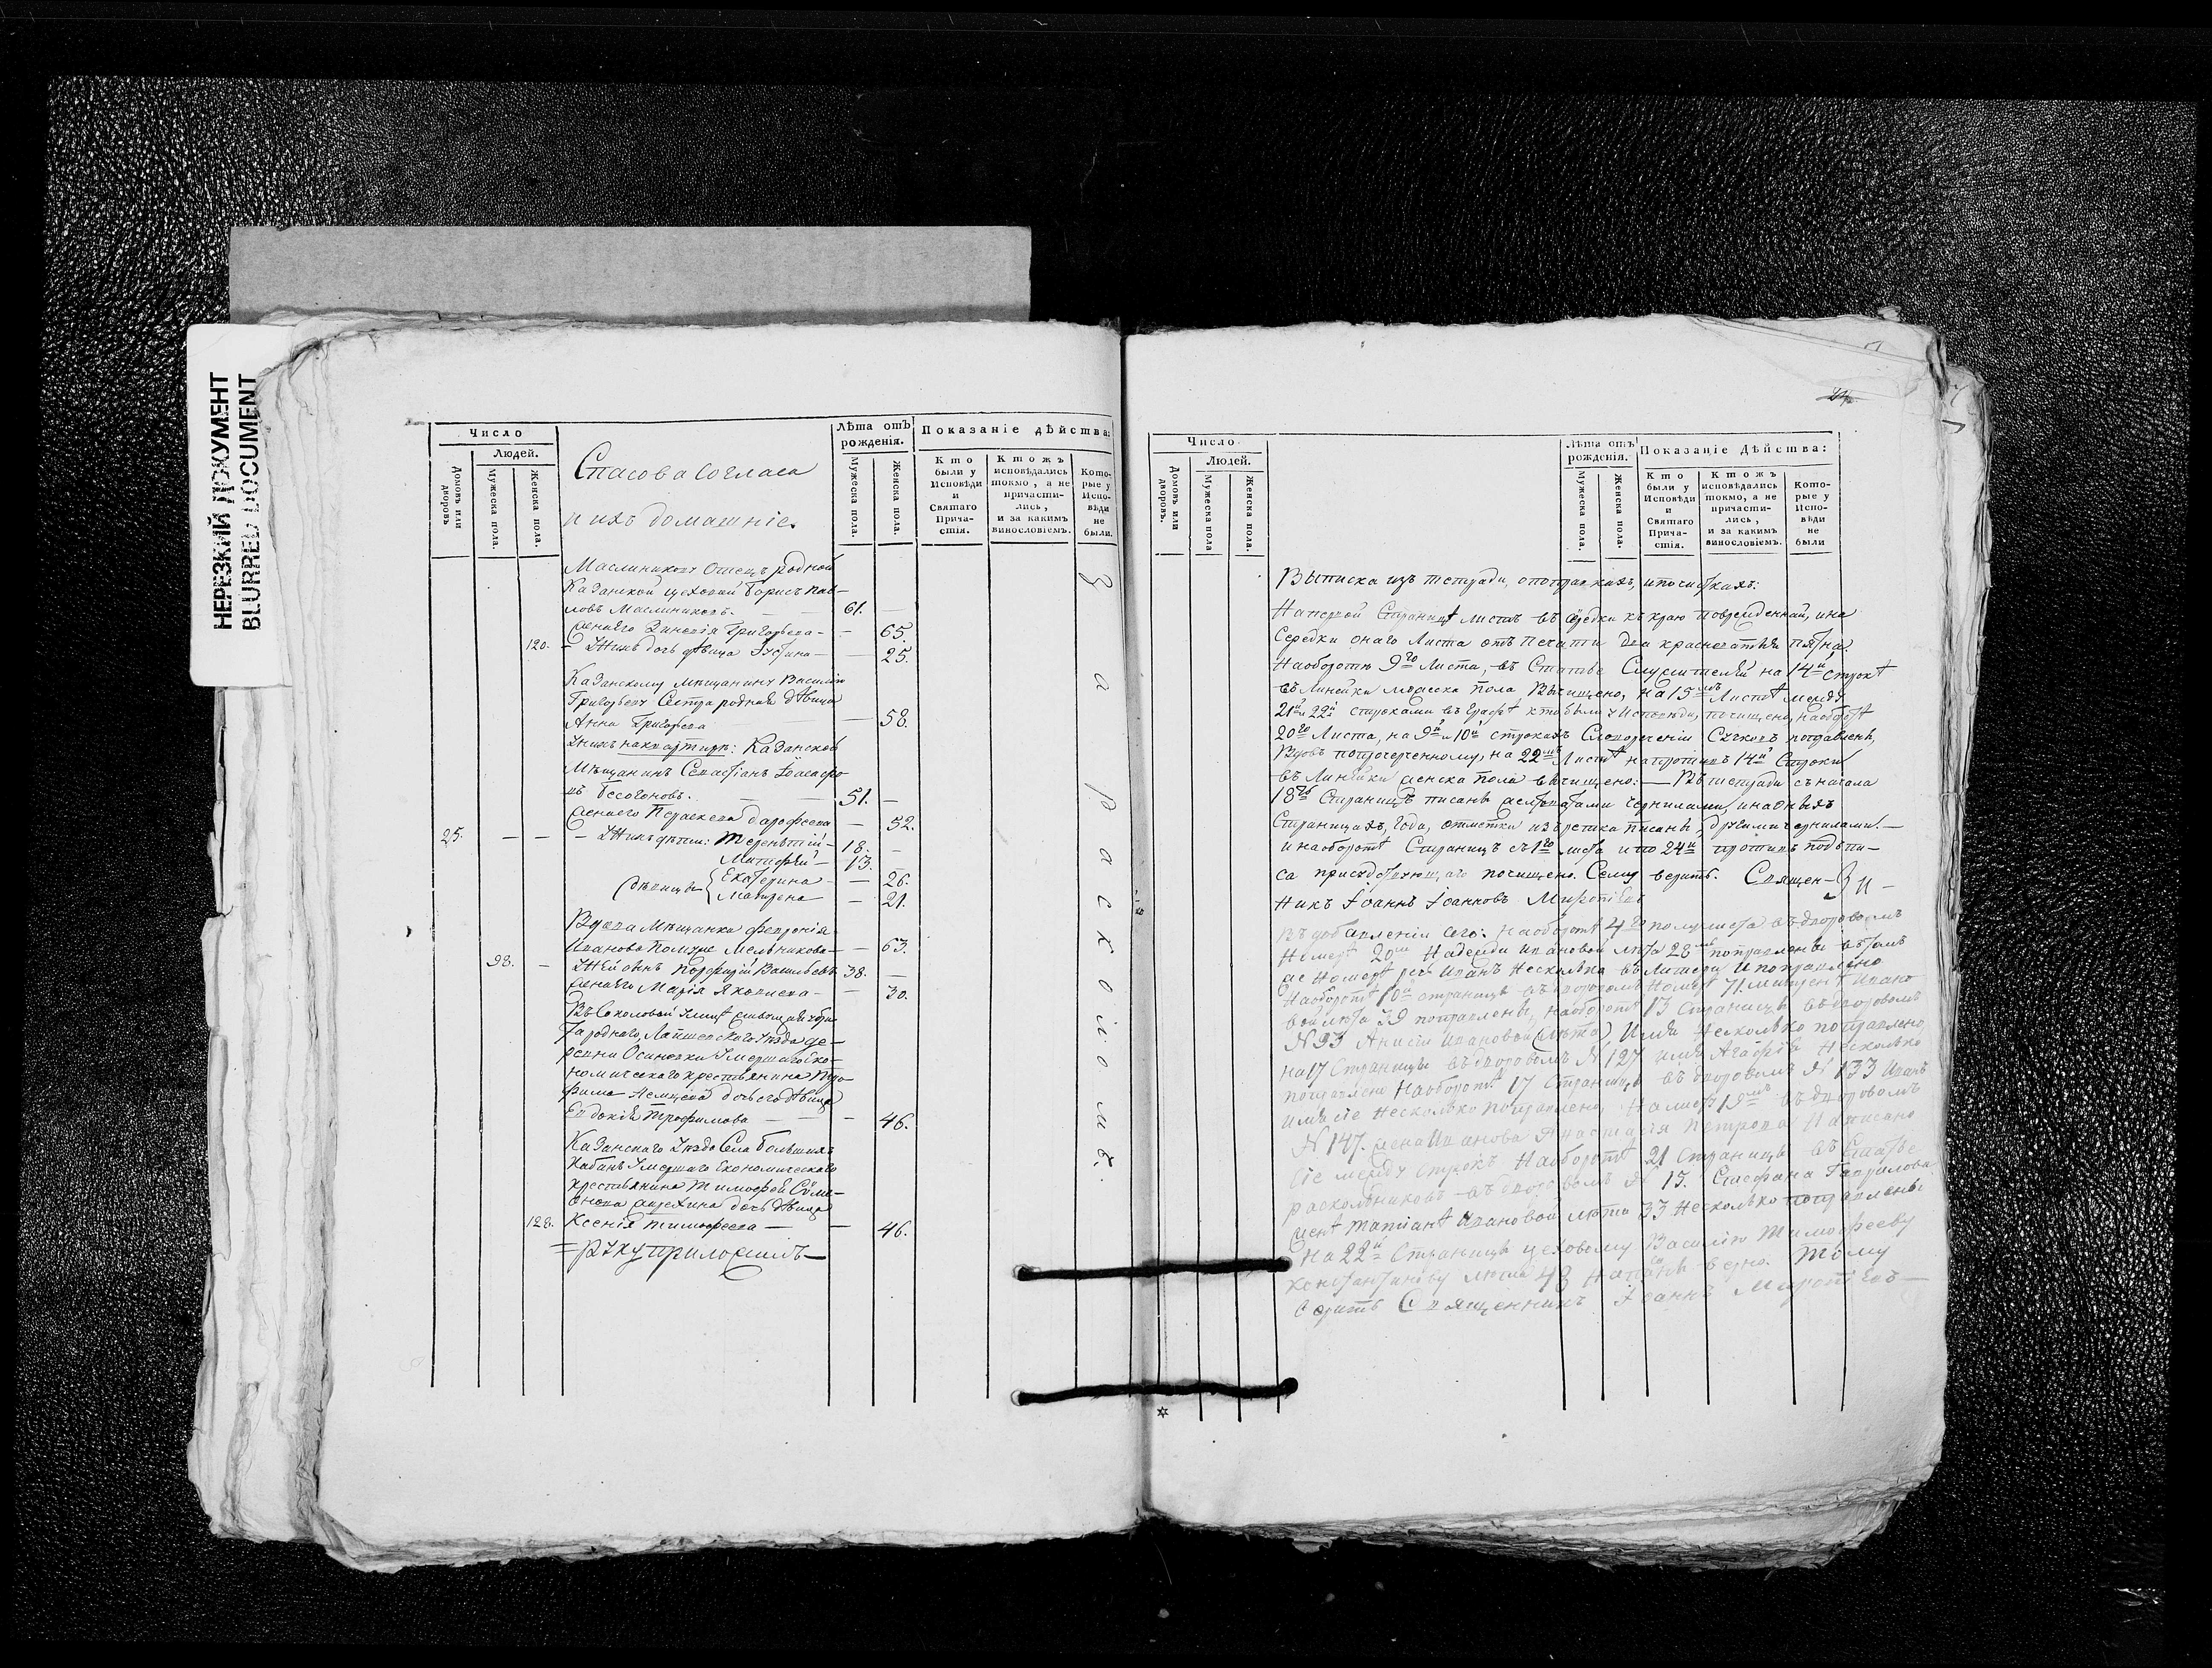 НЕРЕЗКИЙ ДОКУМЕНТ
BLURRED DOCUMENT
Число
Людей.
Домовъ или дворовъ
Мужеска пола.
Женска пола.
Спасова согласа
и ихъ домашніе.
Лѣта отъ рожденія.
Мужеска пола.
Женска пола.
Показаніе дѣйства:
Кто были у Исповѣди и Святаго Прича-стія.
Ктожъ исповѣдались токмо, а не причасти-лись, и за какимъ винословіемъ.
Кото-рые у Испо-вѣди не были.
Масленикову Отецъ родной
Казанской цеховой Борисъ Пав-
ловъ Маслениковъ. 61.
Жена его Зиновія Григорьева - 65.
120. - У нихъ дочь дѣвица Устина - 25.
Казанскому мѣщанину Василію
Григорьеву Сестра родная дѣвица
Анна Григорьева 58.
У нихъ на квартирѣ: Казанской
Мѣщанинъ Севастіанъ Іоасафо
въ Бесогоновъ. 51.
Жена его Параскева Дорофеева - 52.
25. - - - У нихъ дѣти: Терентій - 18. -
Матфей - 13.
дѣвицы { Екатерина - 26.
Мавтрена - 21.
Вдова Мѣщанка Февронія
Иванова Мельникова - 63.
98. - У ней сынъ Порфирій Васильевъ 38. -
Жена его Марія Яковлева - 30.
Въ Соколовой улицѣ
Лаишевскаго уѣзда де-
ревни Осиновки Умершаго Эко-
номическаго крестьянина Тро-
фима дочь его дѣвица
Евдокія Трофимова - 46.
Казанскаго Уѣзда Села Большихъ
Кабанъ Умершаго Экономическаго
крестьянина Тимофея Симе-
онова дочь дѣвица
128. Ксенія Тимофеева - 46.
= руку приложилъ -
За расколомъ.
Число
Людей.
Домовъ или дворовъ.
Мужеска пола
Женска пола.
Лѣта отъ рожденія.
Мужеска пола.
Женска пола.
Показаніе Дѣйства:
Кто были у Исповѣди и Святаго Прича-стія.
Ктожъ исповѣдались токмо, а не причасти-лись, и за какимъ винословіемъ.
Кото-рые у Испо-вѣди не были
Выписка изъ тетради, о поправкахъ, и почисткахъ:
На первой Страницѣ листъ въ середки къ краю поврежденной, и на
Середки онаго Листа отъ печати два красноватыя пятна.
На оборотѣ 9го Листа, въ Статье Служителей на 14й строкѣ
въ Линейки мужеска пола вычищено, на 15мъ Листѣ между
21й и 22й строками въ графѣ кто были у Исповѣди, почищено, на оборотѣ
20го Листа, на 9й и 10й строкахъ поправлены,
Вдовъ на 22мъ Листѣ на противъ 14й Строки
въ Линейки женска пола вычищено: - Въ тетради съ начала
18ть Страницъ писаны желтоватыми чернилами, и на оныхъ
Страницахъ, года, отметки писаны, другими чернилами. -
и на оборотѣ Страницъ съ 1го листа и по 24й противъ подъпи-
са почищено. Сему веритъ. Священ-
никъ Іоаннъ Іоанновъ Миропіевъ
Въ добавленіи сего: На оборотѣ 4го полулиста въ дворовомъ
Номерѣ 20мъ Надежди Ивановой лѣта 28мъ поправлены въ томъ
же Номерѣ Иванъ Несколько въ Литери И поправлено
На оборотѣ 10й страницы въ дворовомъ Номерѣ 71 Ивано
вой лѣта 39 поправлены, на оборотѣ 13 Страницы въ дворовомъ
N 93 Анисіи Ивановой (лѣта) Имя Несколько поправлено,
на 17 Страницы въ дворовомъ N 127 имя Агафія Несколько
поправлено На оборотѣ 17 Страницы въ дворовомъ N 133 Иванъ
имя сіе Несколько поправлено, На листѣ 19мъ въ дворовомъ
N 147. жена Иванова Анастасія Петрова Написано
Сіе между строкъ На оборотѣ 21 Страницы въ Статье
раскольниковъ въ дворовомъ N 15. Стефана Гаврилова
женѣ Татіанѣ Ивановой лѣта 33 Несколько поправлены
На 22й Страницы цеховому Василію Тимофееву
Константинову лѣта 48 Написаны верно. Тому
Веритъ Священникъ Іоаннъ Миропіевъ -